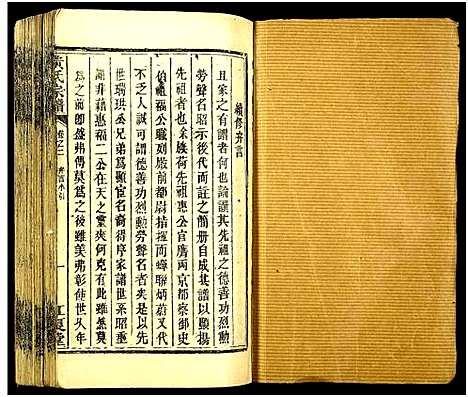 續修弁言
且家之有譜者何也論譔其先祖之德善功烈勳
勞聲名昭示後代而註之簡册自成其譜以顯揚
先祖者也余族荷先祖惠公官膺兩京都察御史
伯祖福公職列殿前都尉指揮聯炳蔚又代
不乏人誠可謂德善功烈勳勞聲名者矣是以先
世瑞珙公兄弟爲顯官名裔得序家譜世系昭垂
雖非藉惠福二公在天之靈爽何克有此雖然莫
爲之前卽盛弗傳莫爲之後雖美弗彰世久年
黃氏宗譜
卷之二
弁言小引
一
江夏堂